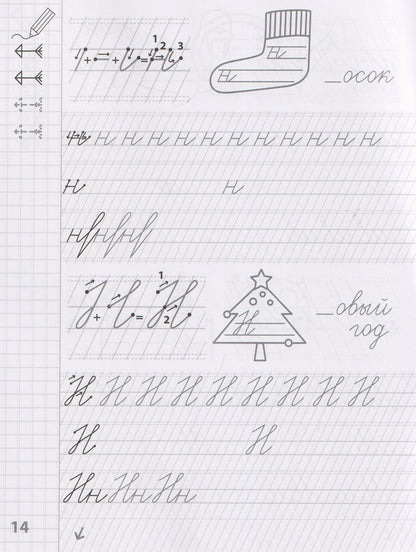 1 2 3
+ + =
н
н
_осок
н н н н н н н н н н н н
н н
ннн
1
+ = 2
Н
_овый
год
Н Н Н Н Н Н Н Н
Н Н
НнНнНн
14